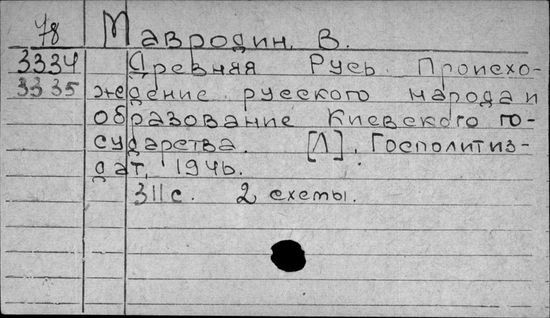 78 Мавродин, В.
3334 Древняя Русь. Происхо-
3335 ждение русского народа и
образование Киевского го-
сударства. [Л], Госполитиз-
дат, 1946.
311с. 2 схемы.